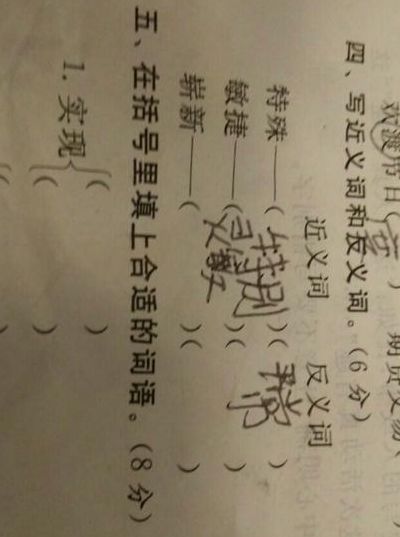 欢渡节日(度) 期货交易(
四、写近义词和反义词。(6分)
近义词 反义词
特殊——(特别)(平常)
敏捷——(灵敏)( )
崭新——( )( )
五、在括号里填上合适的词语。(8分)
( )
1. 实现{( )
( )